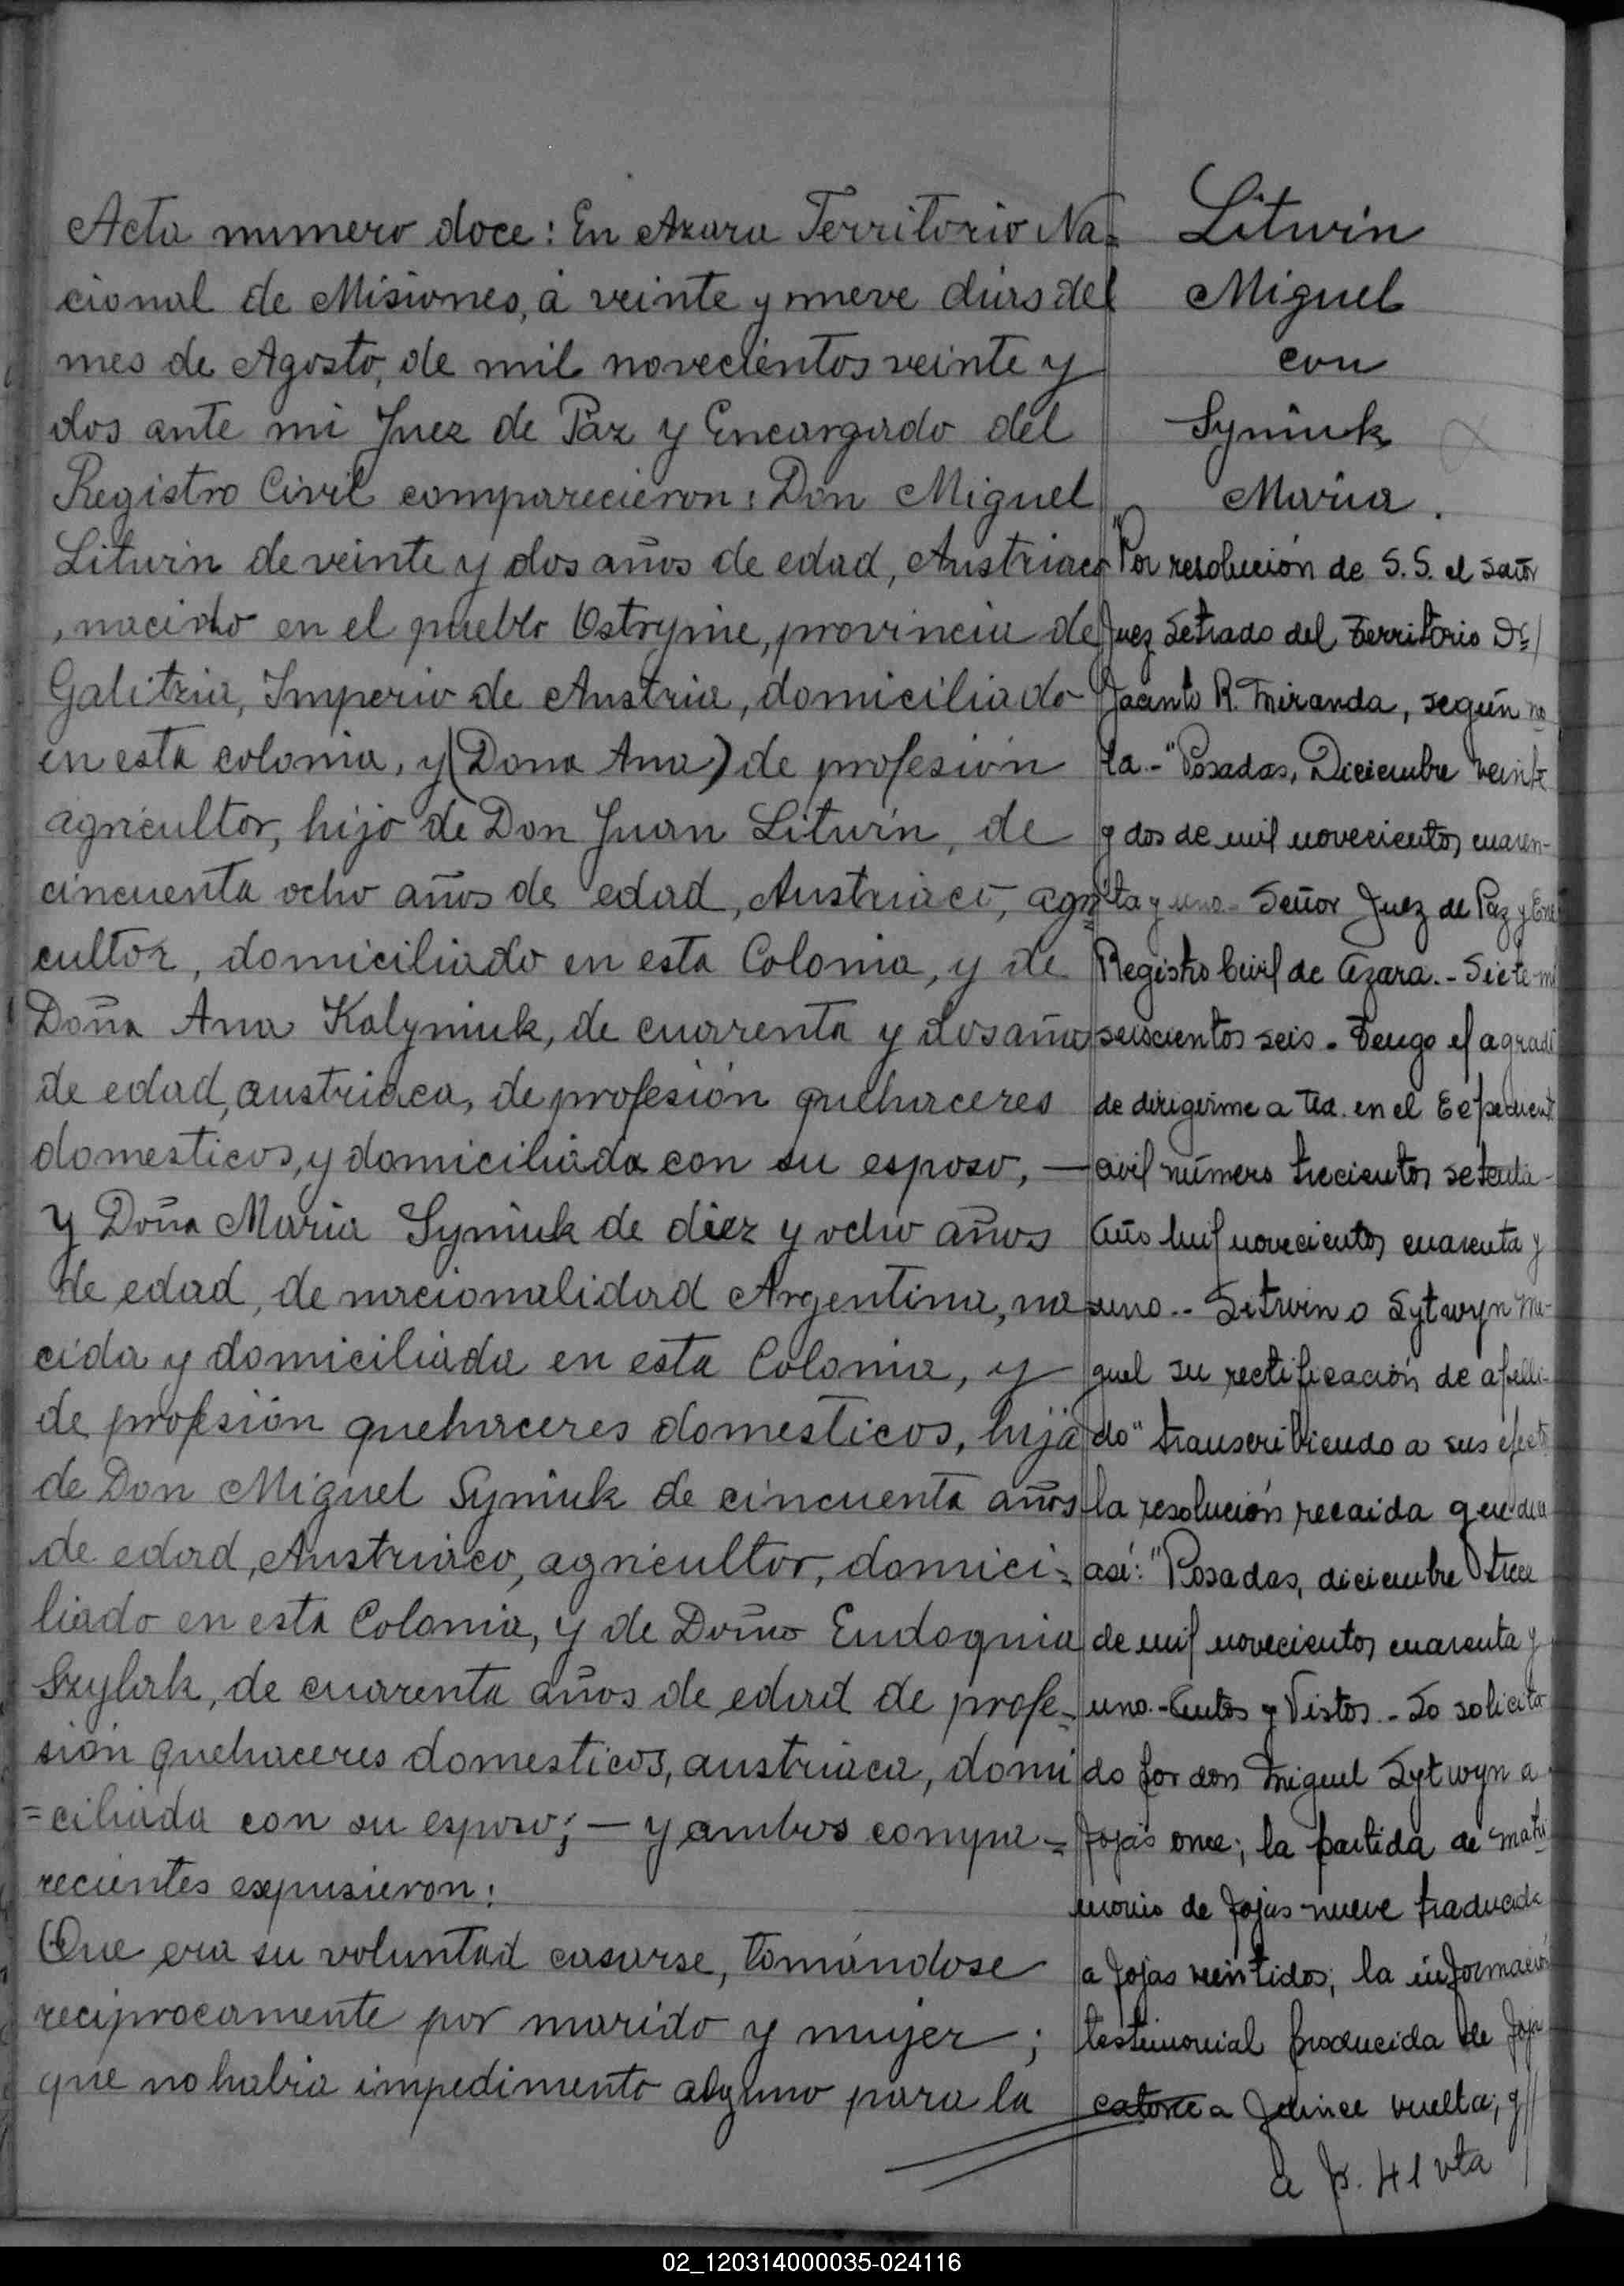 Acta numero doce: En Azara Territorio Na=
cional de Misiones, á veinte y nueve dias del
mes de Agosto, de mil novecientos veinte y
dos ante mi Juez de Paz y Encargado del
Registro Civil comparecieron: Don Miguel
Litwin de veinte y dos años de edad, Austriaco
, nacido en el pueblo Ostrynie, provincia de
Galitzia, Imperio de Austria, domiciliado
en esta colonia, y (Dona Ana) de profesión
agricultor, hijo de Don Juan Litwin, de
cincuenta ocho años de edad, Austriaco, agri=
cultor, domiciliado en esta Colonia, y de
Doña Ana Kalyniuk, de cuarenta y dos años
de edad, austriaca, de profesión quehaceres
domesticos, y domiciliada con su esposo, —
y Doña Maria Syniuk de diez y ocho años
de edad, de nacionalidad Argentina, na=
cida y domiciliada en esta Colonia, y
de profesión quehaceres domesticos, hija
de Don Miguel Syniuk de cincuenta años
de edad, Austriaco, agricultor, domici=
liado en esta Colonia, y de Doña Eudoquia
Szylak, de cuarenta años de edad de profe=
sión quehaceres domesticos, austriaca, domi
=ciliada con su esposo; — y ambos compa=
recientes expusieron:
Que era su voluntad casarse, tomándose
reciprocamente por marido y mujer;
que no habia impedimento alguno para la
Litwin
Miguel
con
Syniuk
Maria.
"Por resolución de S.S. el Señor
Juez Letrado del Territorio Dr.
Jacinto R. Miranda, según no
ta.- "Posadas, Diciembre veinte
y dos de mil novecientos cuaren-
ta y uno.- Señor Juez de Paz y Enc
Registro Civil de Azara.- Siete mil
seiscientos seis. Tengo el agrado
de dirigirme a Ud. en el Expediente
civil número trecientos setenta
Año mil novecientos cuarenta y
uno.- Litwin o Lytwyn Mi-
guel su rectificación de apelli-
do" transcribiendo a sus efectos
la resolución recaida que dice
así: "Posadas, diciembre trece
de mil novecientos cuarenta y
uno.- Autos y Vistos.- Lo solicita
do por don Miguel Lytwyn a
fojas once; la partida de matri
monio de fojas nueve traducida
a fojas veintidos; la información
testimonial producida de fojas
catorce a quince vuelta; y
a fs. 41 vta
02_120314000035-024116